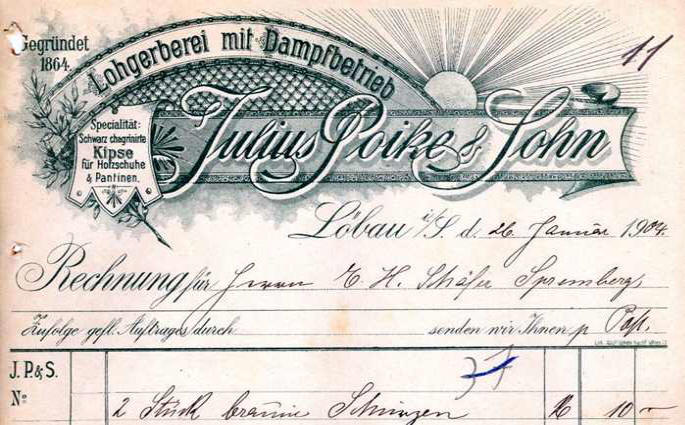 Gegründet
1864.
Lohgerberei mit Dampfbetrieb
11
Specialität:
Schwarz chagrinirte
Kipse
für Holzschuhe
& Pantinen.
Julius Poike & Sohn
Löbau i/S. d. 26. Januar 1904.
Rechnung für Herrn E. H. Schäfer Spremberg,
Zufolge gefl. Auftrages durch senden wir Ihnen p Post.
J. P. & S.
No
2 Stück braune Schürzen 10